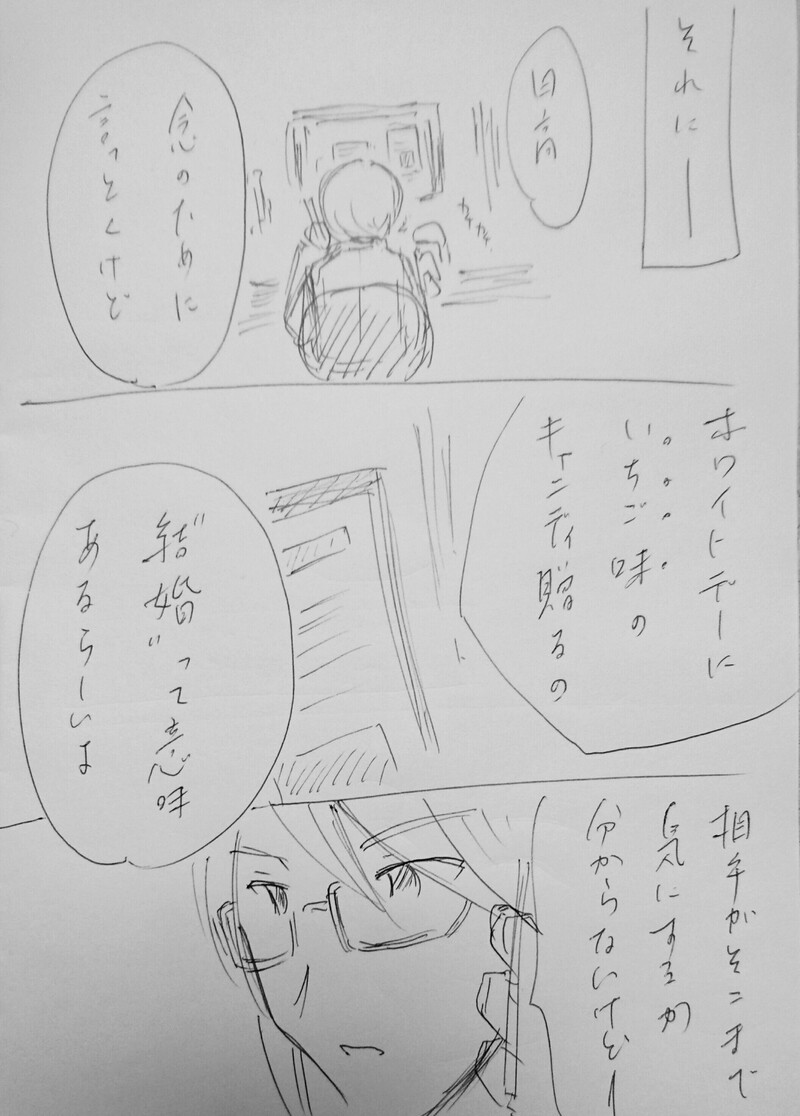 それにー
日高
カタカタ
念のために
言っとくけど
ホワイトデーに
いちご味の
キャンディ贈るの
"結婚"って意味
あるらーいよ
相手がそこまで
気にするか
分からないけどー